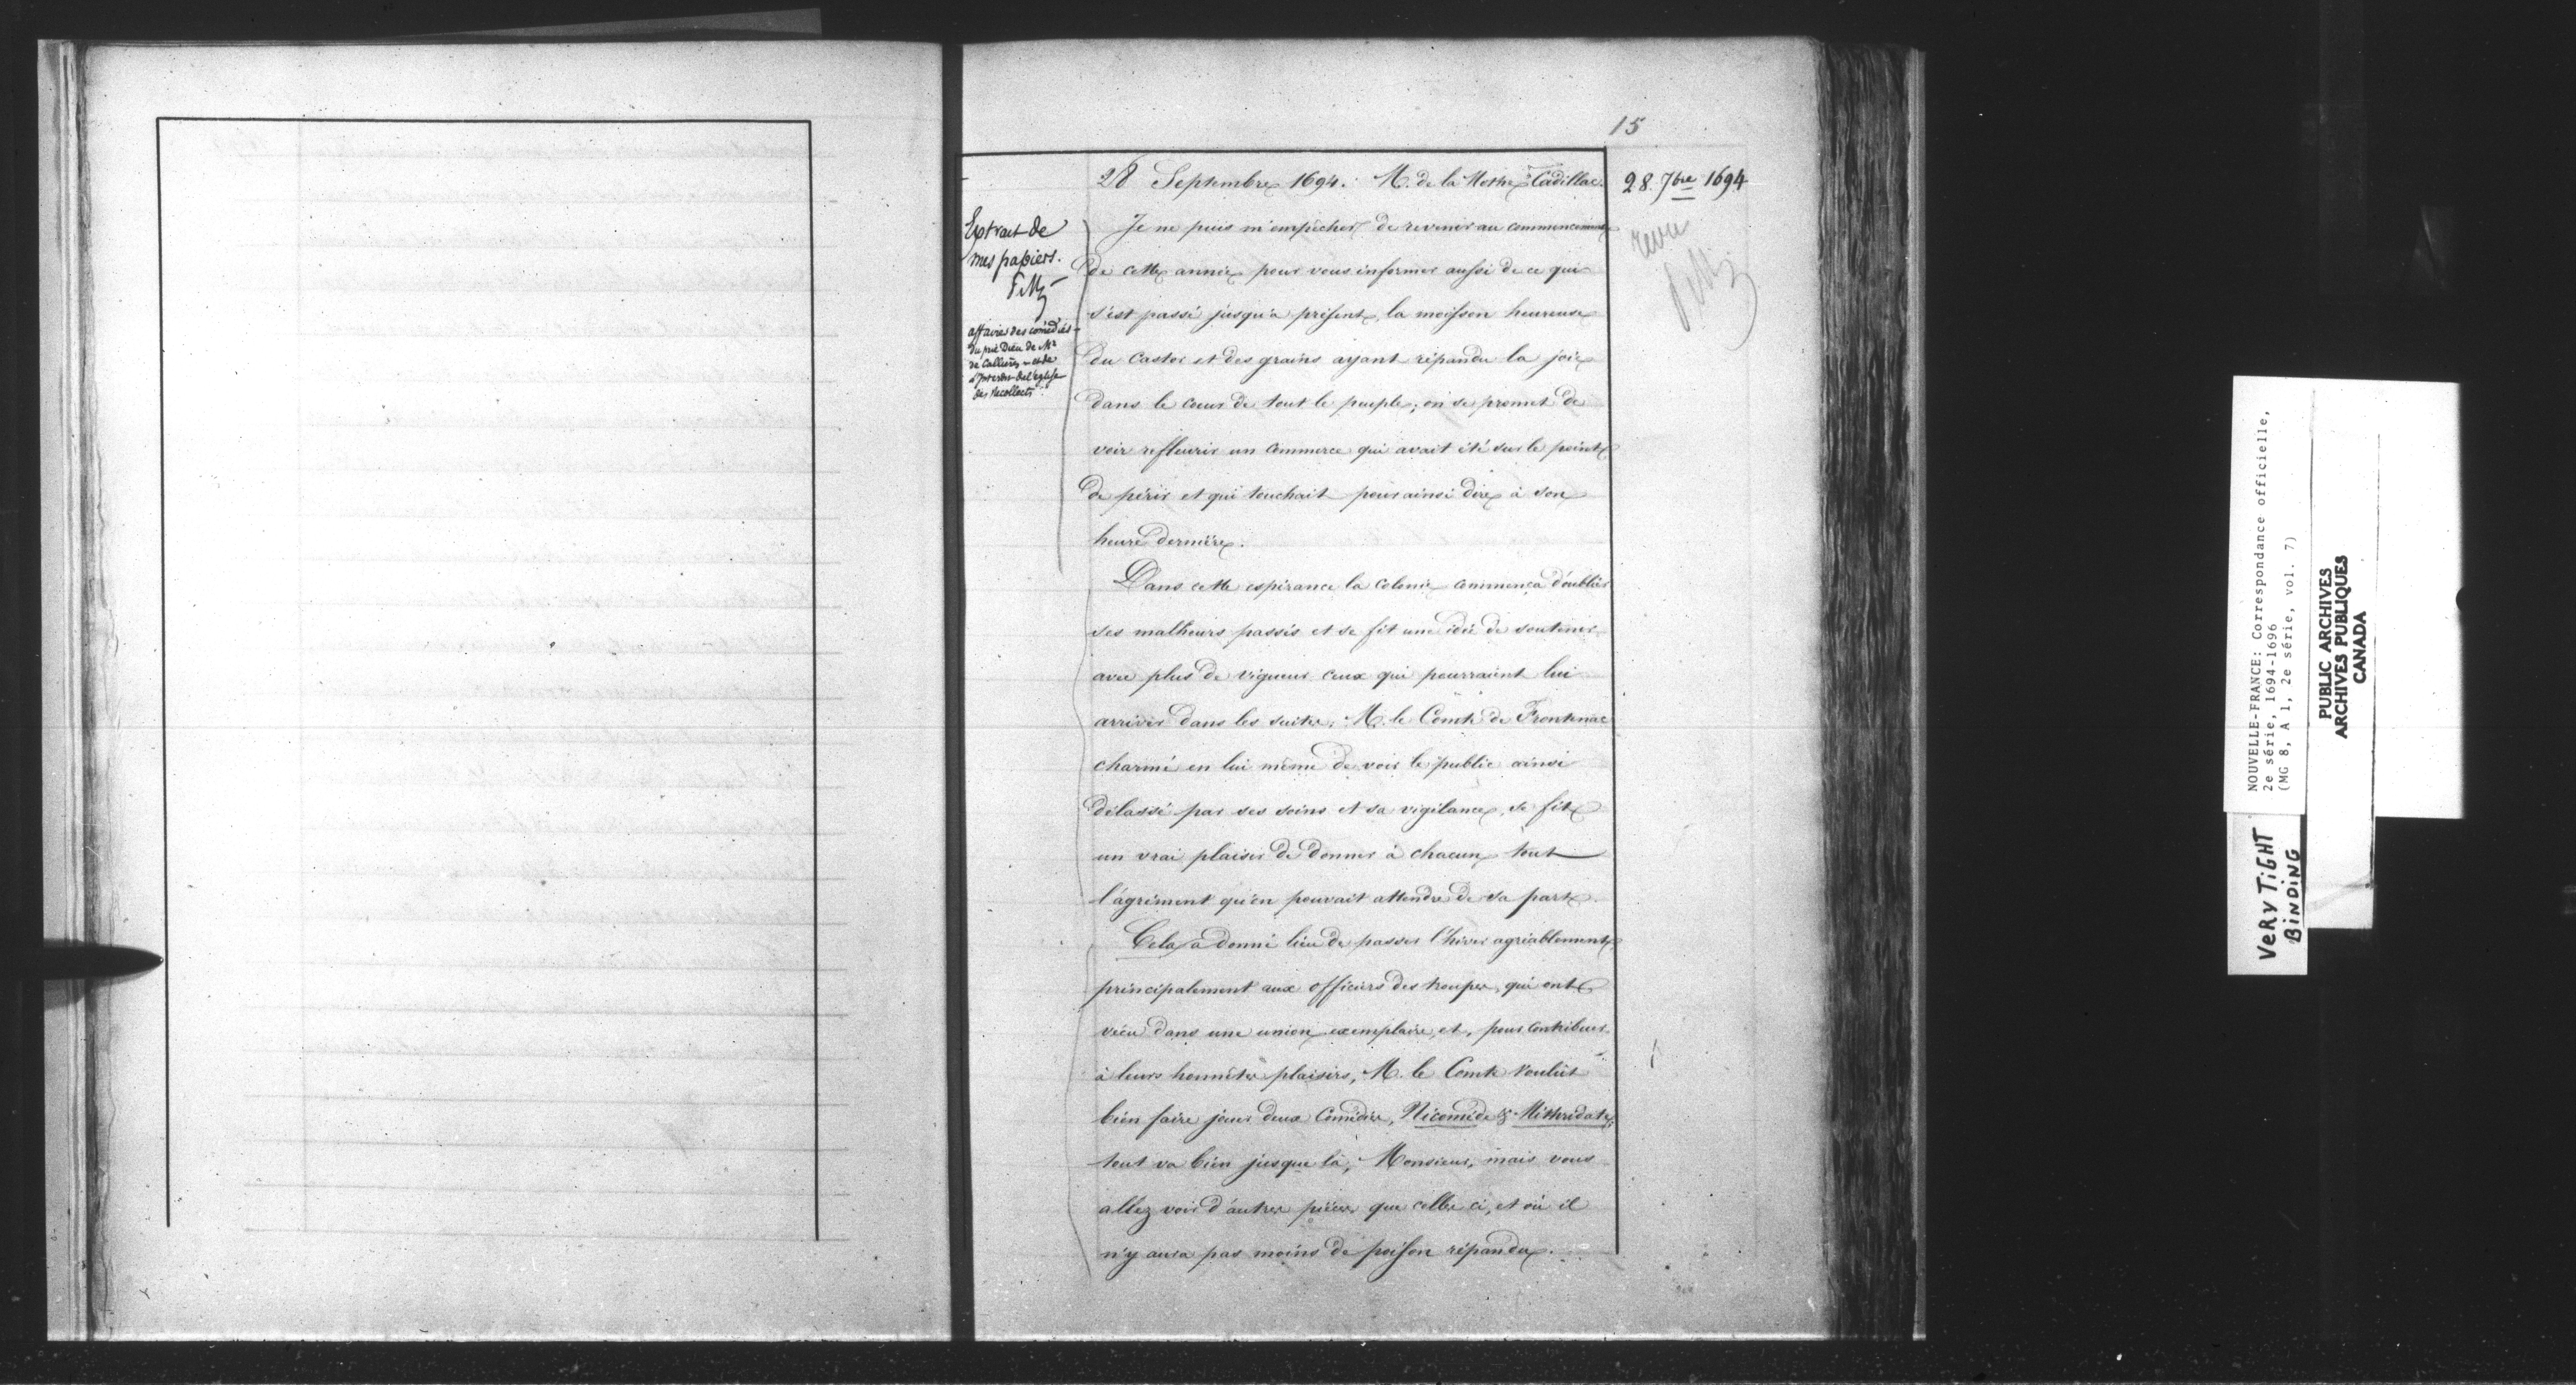 15
28 Septembre 1694. M. de la Mothe Cadillac.
28. 7bre 1694
revu
Extrait de
mes papiers.
affaires des comédies
du prie Dieu de Mr
de Callières, et de
l'Interdit de l'eglise
des Recollects
Je ne puis m'empêcher de revenir au commencement
de cette année pour vous informer aussi de ce qui
s'est passé jusqu'a présent, la moisson heureuse
du Castor et des grains ayant répandu la joie
dans le cœur de tout le peuple; on se promet de
voir refleurir un commerce qui avait été sur le point
de périr et qui touchait pour ainsi dire à son
heure dernière.
Dans cette espérance la Colonie commença d'oublier
ses malheurs passés et se fit une idée de soutenir
avec plus de vigueur ceux qui pourraient lui
arriver dans les suites. M. le Comte de Frontenac
charmé en lui même de voir le public ainsi
délassé par ses soins et sa vigilance, se fit
un vrai plaisir de donner à chacun tout
l'agrément qu'en pouvait attendre de sa part.
Cela a donné lieu de passer l'hiver agréablement
principalement aux officiers des troupes, qui ont
vécu dans une union exemplaire, et, pour contribuer
à leurs honnêtes plaisirs, M. le Comte voulût
bien faire jouer deux Comédies, Nicomède & Mithridate;
tout va bien jusque là, Monsieur, mais vous
allez voir d'autres pièces que celles ci, et où il
n'y aura pas moins de poison répandu.
NOUVELLE-FRANCE: Correspondance officielle,
2e série, 1694-1696
(MG 8, A 1, 2e série, vol. 7)
PUBLIC ARCHIVES
ARCHIVES PUBLIQUES
CANADA
VERY TIGHT
BINDING